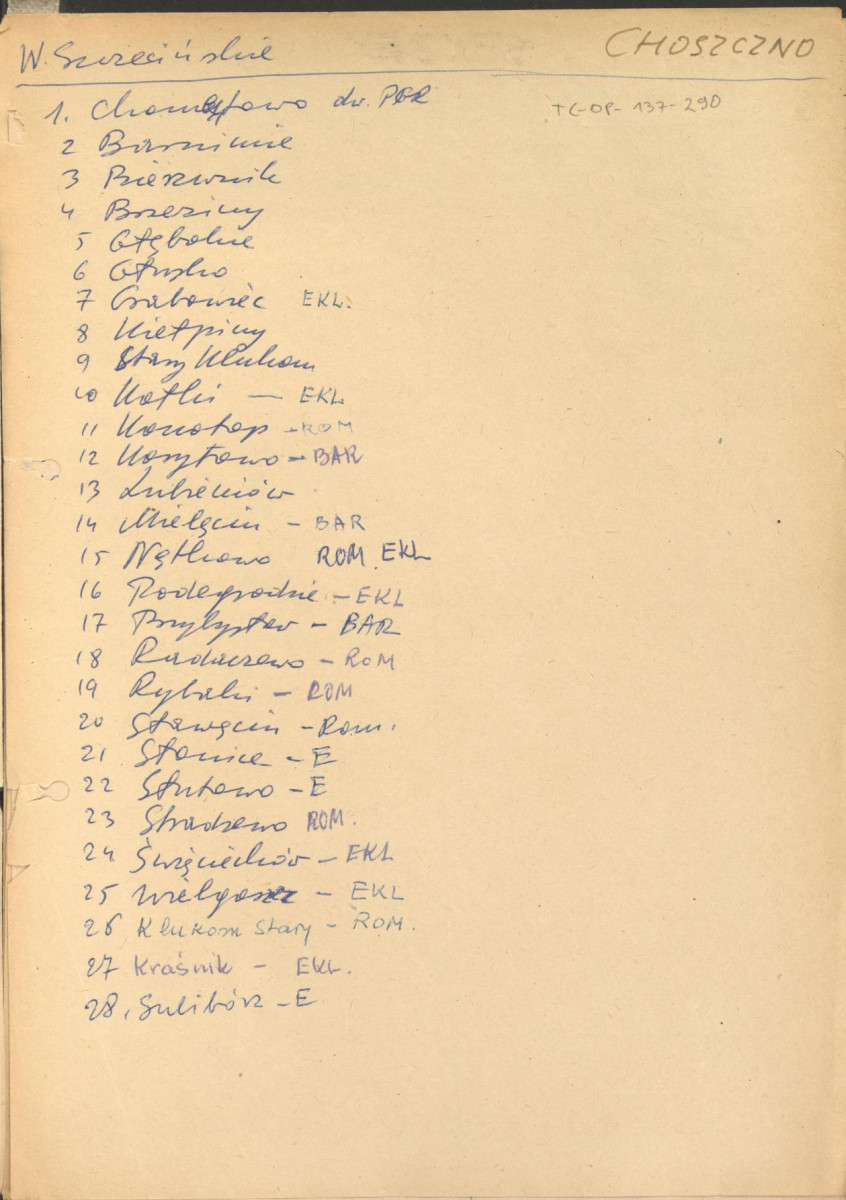 W. Szczecińskie
CHOSZCZNO
TC-OP-137-290
1. Chomętowo dw. PGR
2 Barnimie
3 Bierzwnik
4 Brzeziny
5 Głębokie
6 Głusko
7 Grabowiec EKL.
8 Kiełpiny
9 Stary Klukom
10 Kołki — EKL
11 Konotop - ROM
12 Korytowo - BAR
13 Lubieniów
14 Mielęcin - BAR
15 Nętkowo ROM EKL
16 Podegrodzie - EKL
17 Przybysław - BAR
18 Radaczewo - ROM
19 Rybaki - ROM
20 Sławęcin - Rom.
21 Słonice - E
22 Słutowo - E
23 Stradzewo ROM.
24 Święciechów - EKL
25 Wielgosz - EKL
26 Klukom Stary - ROM.
27 Kraśnik - EKL.
28. Sulibórz - E